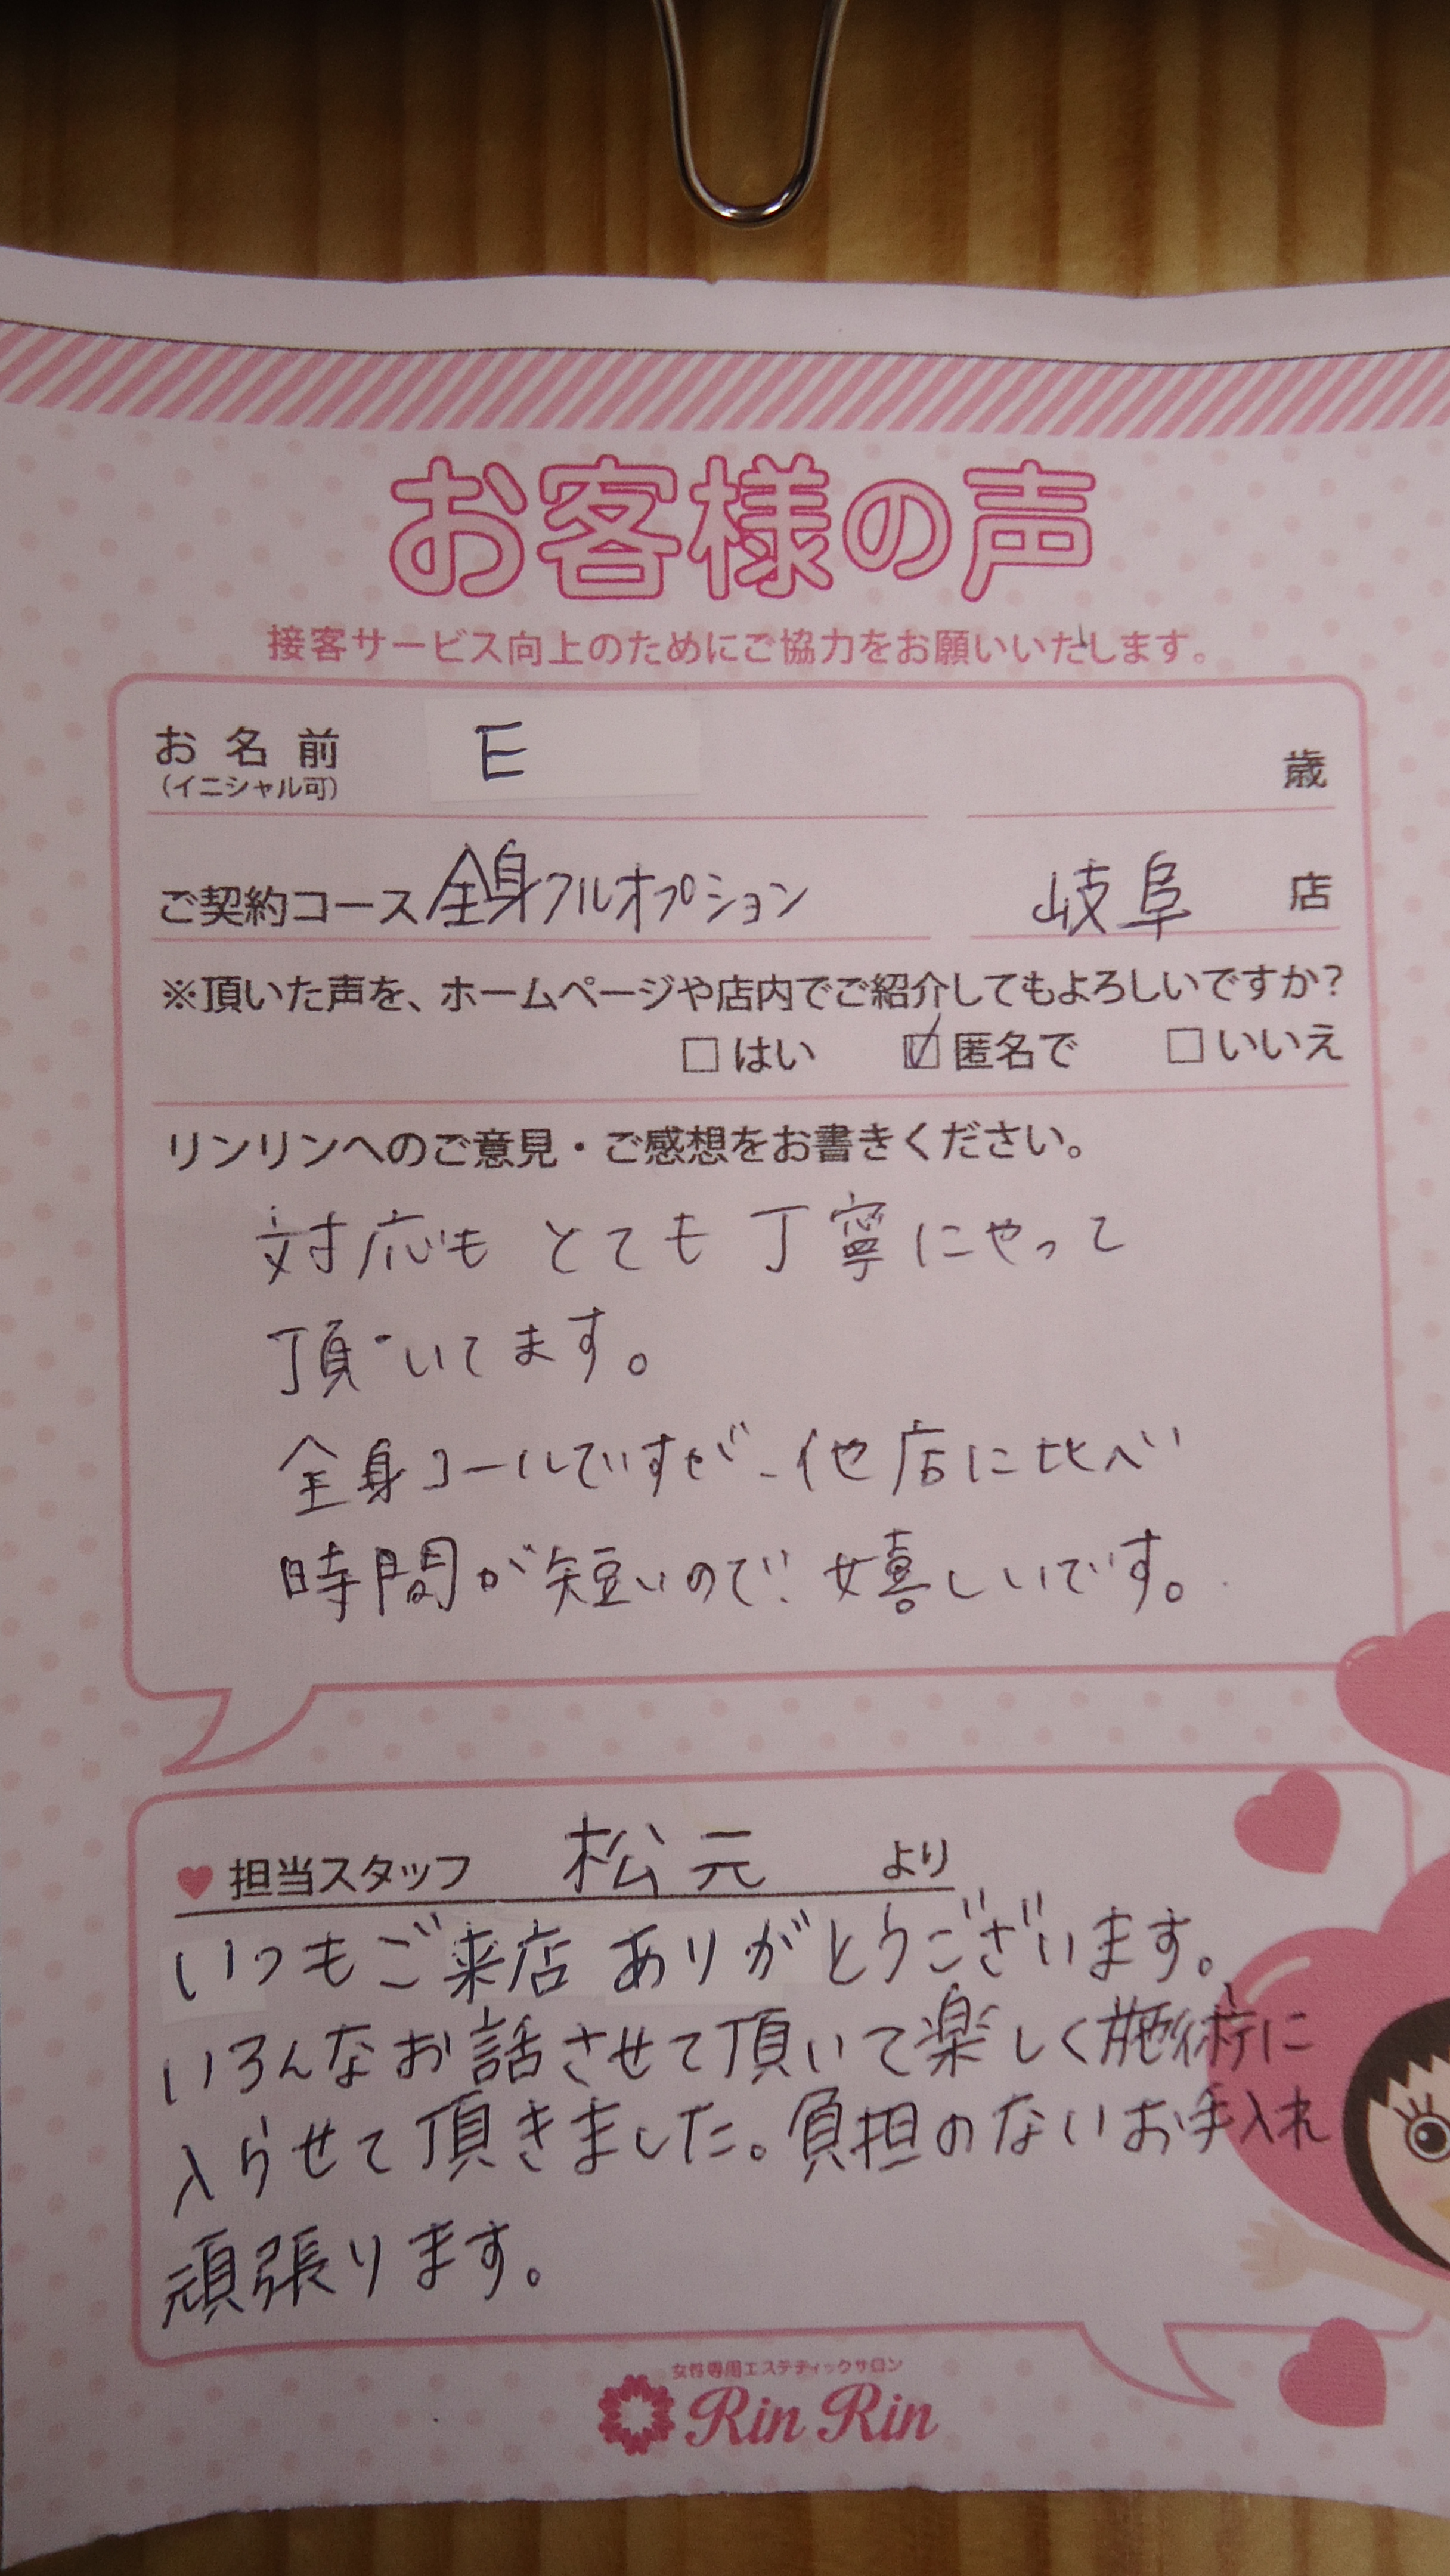 お客様の声
接客サービス向上のためにご協力をお願いいたします。
お名前 E 歳
(イニシャル可)
ご契約コース 全身フルオプション 岐阜 店
※頂いた声を、ホームページや店内でご紹介してもよろしいですか?
□はい ☑匿名で □いいえ
リンリンへのご意見・ご感想をお書きください。
対応もとても丁寧にやって
頂いてます。
全身コールですが、他店に比べ
時間が短いので嬉しいです。
♥担当スタッフ 松元 より
いつもご来店ありがとうございます。
いろんなお話させて頂いて楽しく施術に
入らせて頂きました。負担のないお手入れ
頑張ります。
女性専用エステティックサロン
Rin Rin